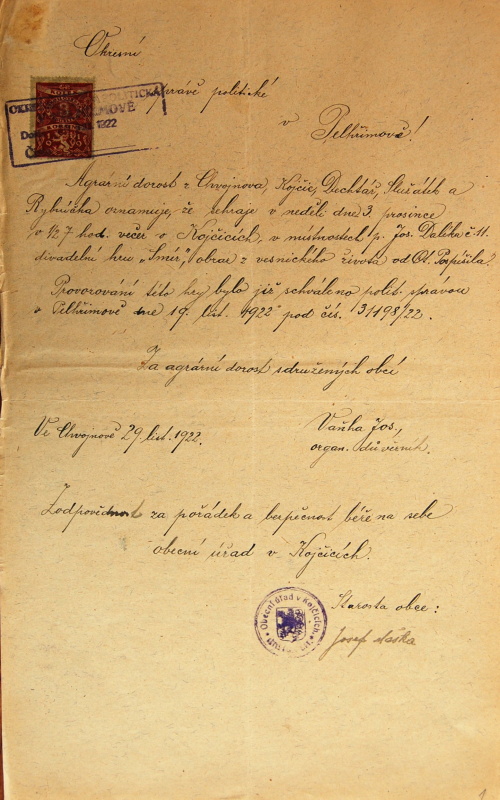 Okresní
správě politické
v Pelhřimově!
OKRESNÍ SPRÁVA POLITICKÁ
1922
Agrární dorost z Chvojnova, Kojčic, Dechtář, Služátek a
Rybníčka oznamuje, že sehraje v neděli dne 3. prosince
o 1/2 7 hod. večer v Kojčicích, v místnostech p. Jos. č. 11.
divadelní hru „Smír", obraz z vesnického života od Ot. Pospíšila.
Provozování této hry bylo již schváleno polit. správou
v Pelhřimově dne 19. list. 1922 pod čís. 31198/22.
Za agrární dorost sdružených obcí
Ve Chvojnově 29. list. 1922.
Vaňha Jos.,
organ. důvěrník.
Zodpovědnost za pořádek a bezpečnost béře na sebe
obecní úřad v Kojčicích.
Obecní úřad v Kojčicích
Starosta obce:
Josef
1